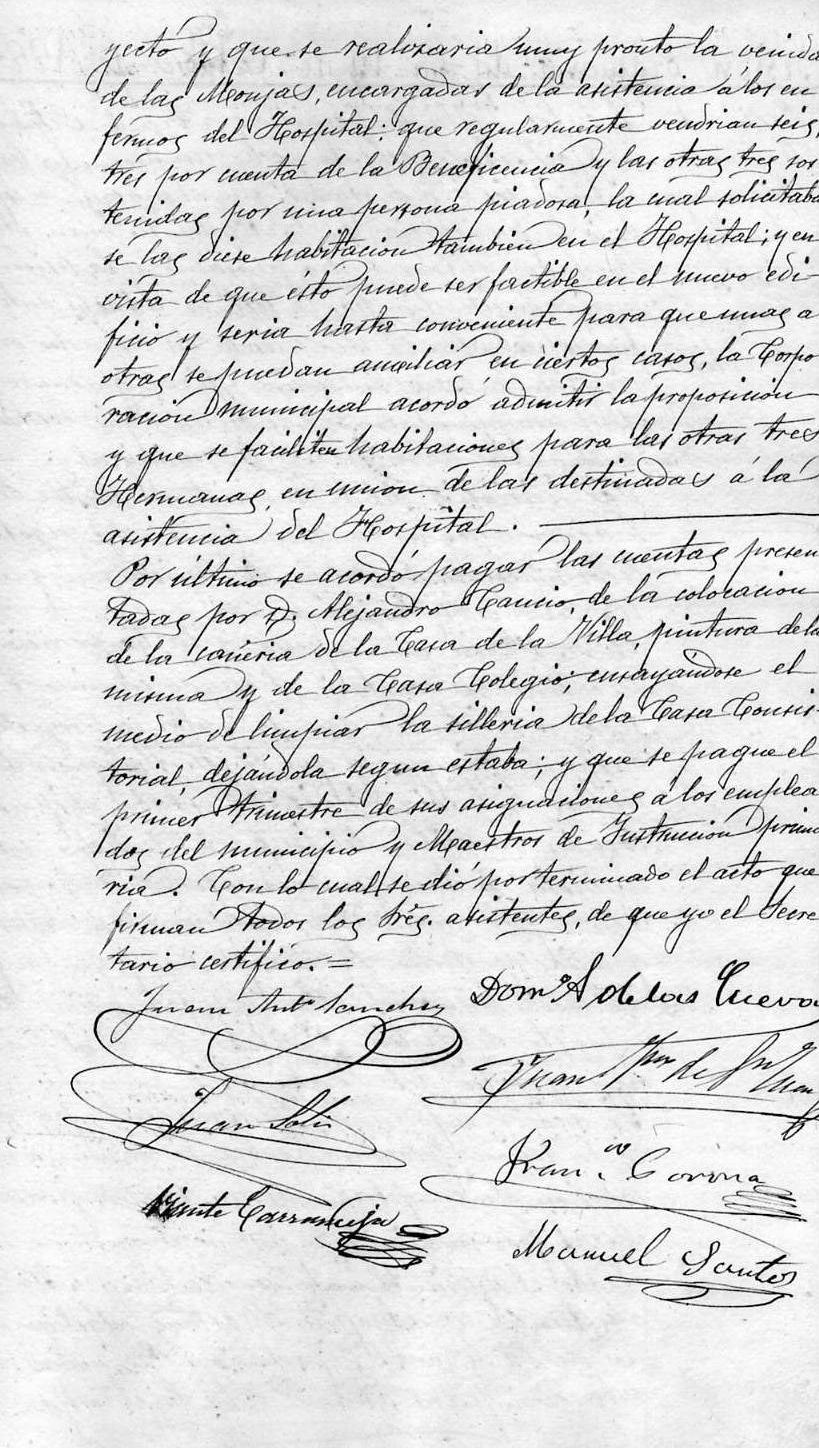 yecto y que se realizaria muy pronto la venida
de las Monjas, encargadas de la asistencia á los en
fermos del Hospital: que regularmente vendrian seis,
tres por cuenta de la Beneficencia y las otras tres sos
tenidas por una persona piadosa, la cual solicitaba
se las diese habitacion tambien en el Hospital; y en
vista de que ésto puede ser factible en el nuevo edi-
ficio y seria hasta conveniente para que unas a
otras se puedan auxiliar en ciertos casos, la Corpo
racion municipal acordó admitir la proposicion
y que se faciliten habitaciones para las otras tres
Hermanas, en union de las destinadas á la
asistencia del Hospital.
Por último se acordó pagar las cuentas presen
tadas por D. Alejandro Cancio, de la colocacion
de la cañeria de la Casa de la Villa, pintura de la
misma y de la Casa Colegio; ensayándose el
medio de limpiar la silleria de la Casa Consis-
torial, dejándola segun estaba; y que se pague el
primer trimestre de sus asignaciones á los emplea
dos del municipio y Maestros de Instrucion prima
ria. Con lo cual se dió por terminado el acto que
firman todos los Sres. asistentes, de que yo el Secre
tario certifico. =
Juan Antº Sanchez Domº A de las Cueva
Juan de Sn Juan
Juan Solis
Franco Corona
Vicente Carrasceja
Manuel Santos